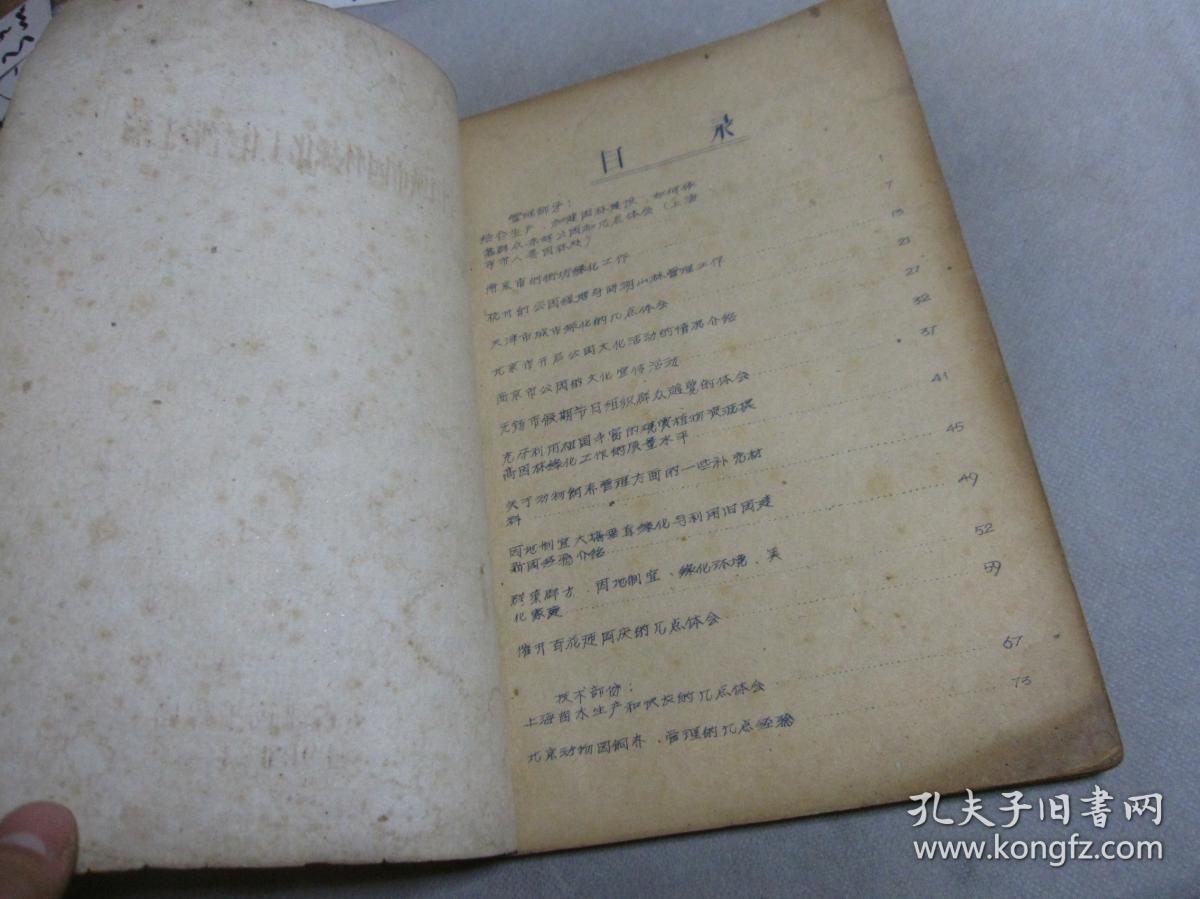 目录
管理部分：
结合生产、加速园林建设、如何依 7
靠群众办好公园和几点体会（上海
市市人委园林处）
南京市的街坊绿化工作 15
杭州的公园绿地与西湖山林管理工作 21
天津市城市绿化的几点体会 27
北京市开启公园文化活动的情况介绍 32
南京市公园的文化宣传活动 37
无锡市假期节日组织群众游览的体会 41
充分利用祖国丰富的观赏植物资源提
高园林绿化工作的质量水平 45
关于动物饲养管理方面的一些补充材
料 49
因地制宜大搞垂直绿化与利用旧园建
新园经验介绍 52
群众、因地制宜、绿化环境、美
化家庭 59
催开百花迎国庆的几点体会
技术部份：
上海苗木生产和的几点体会 67
北京动物园饲养、管理的几点经验 73
孔夫子旧书网
www.kongfz.com